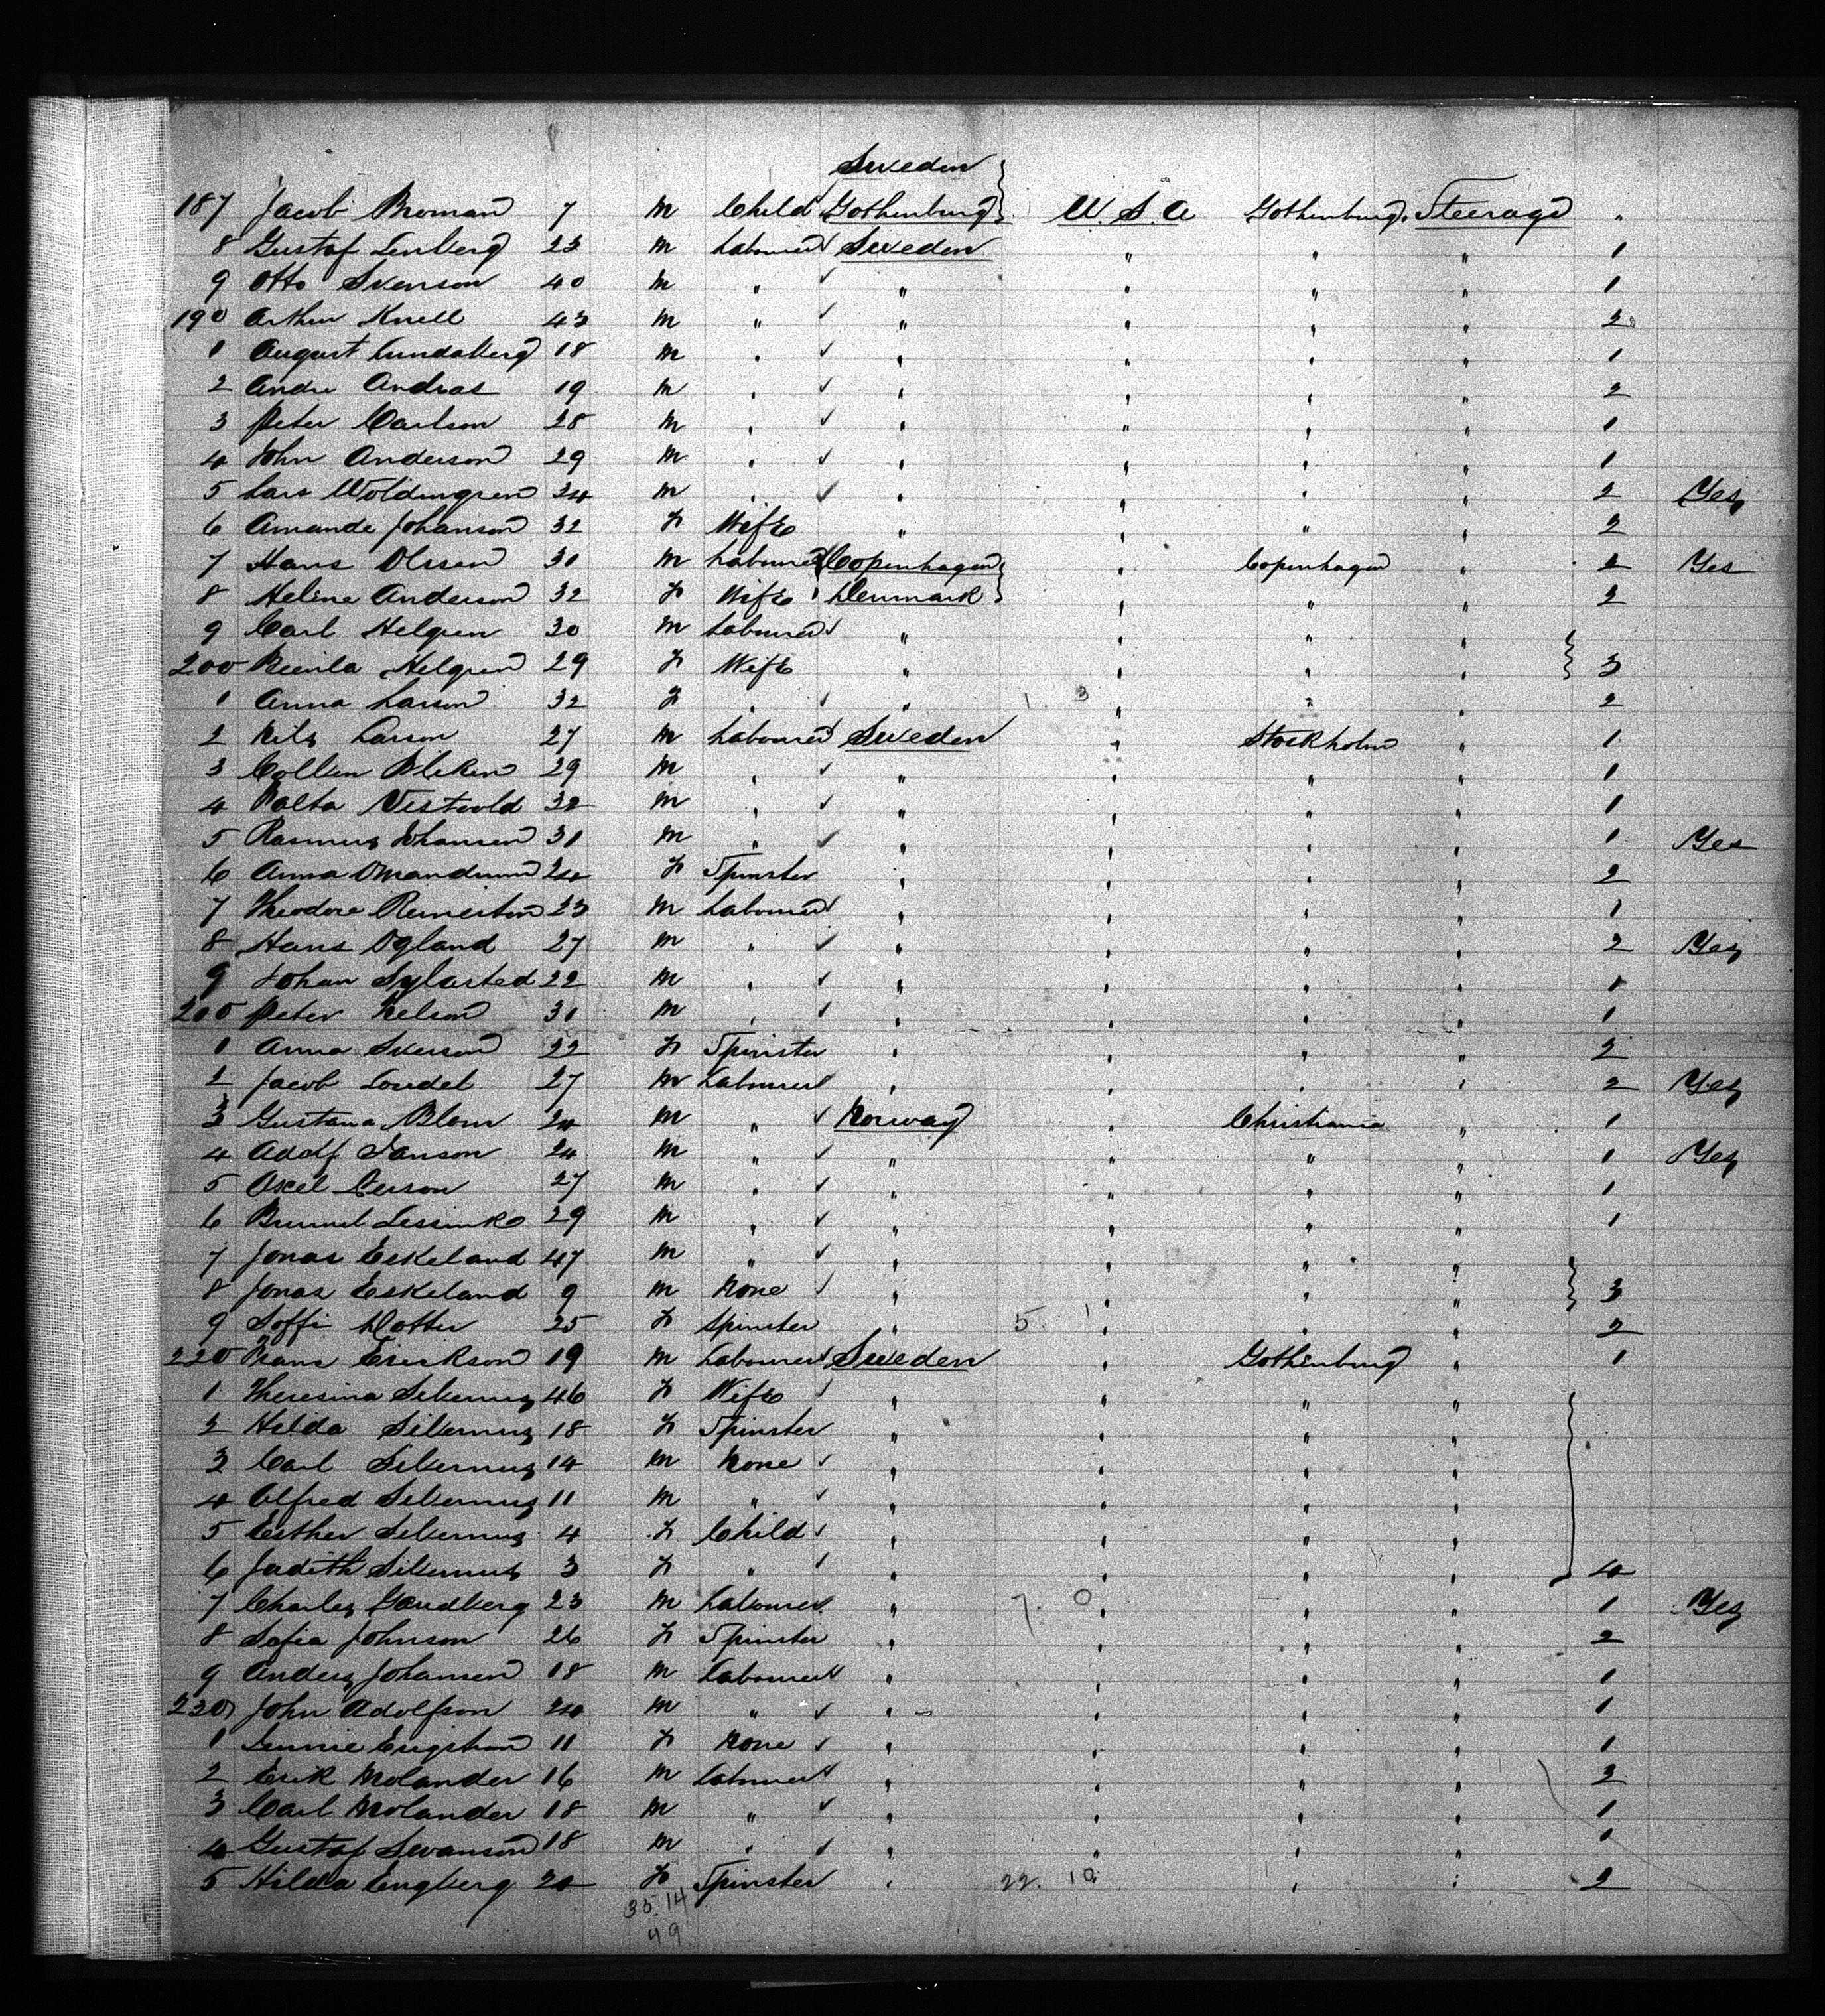 Sweden
187 Jacob Broman 7 M Child Gothenburg U.S.A Gothenburg Steerage "
8 Gustaf Lenberg 23 M Labourer Sweden " " " 1
9 Otto Svenson 40 M " " " " " 1
190 Arthur Knell 43 M " " " " " 2
1 August Lundaberg 18 M " " " " " 1
2 Andre Andras 19 M " " " " " 2
3 Peter Carlson 28 M " " " " " 1
4 John Anderson 29 M " " " " " 1
5 Lars Woldingren 34 M " " " " " 2 Yes
6 Amande Johanson 32 F Wife " " " " 2
7 Hans Olsson 30 M Labourer Copenhagen " Copenhagen " 2 Yes
8 Heline Anderson 32 F Wife Denmark " " " 2
9 Carl Helgren 30 M Labourer " " " "
200 Helgren 29 F Wife " " " " 3
1 Anna Larson 32 F " " 1. 3 " " " 2
2 Nils Larson 27 M Labourer Sweden " Stockholm " 1
3 29 M " " " " " 1
4 32 M " " " " " 1
5 Rasmus Johansen 31 M " " " " " 1 Yes
6 Anna 24 F Spinster " " " " 2
7 Theodore 23 M Labourer " " " " 1
8 Hans Ogland 27 M " " " " " 2 Yes
9 Johan 22 M " " " " " 1
200 Peter Nelson 31 M " " " " " 1
1 Anna Sverson 22 F Spinster " " " " 2
2 Jacob Loudel 27 M Labourer " " " " 2 Yes
3 Gustava Blom 24 M " Norway " Christiania " 1
4 Adolf Janson 24 M " " " " " 1 Yes
5 Axel Lerson 27 M " " " " " 1
6 29 M " " " " " 1
7 Jonas Eskeland 47 M " " " " "
8 Jonas Eskeland 9 M None " " " " 3
9 Soffi Dotter 25 F Spinster " 5. 1 " " " 2
220 Frans Erickson 19 M Labourer Sweden " Gothenburg " 1
1 Theresina Silvernus 46 F Wife " " " "
2 Hilda Silvernus 18 F Spinster " " " "
3 Carl Silvernus 14 M None " " " "
4 Alfred Silvernus 11 M " " " " "
5 Esther Silvernus 4 F Child " " " "
6 Judith Silvernus 3 F " " " " " 4
7 Charles Sandberg 23 M Labourer " 7. 0 " " " 1 Yes
8 Sofia Johnson 26 F Spinster " " " " 2
9 Anders Johansen 18 M Labourer " " " " 1
230 John Adolfson 24 M " " " " " 1
1 11 F None " " " " 1
2 Erik Molander 16 M Labourer " " " " 2
3 Carl Molander 18 M " " " " " 1
4 Gustaf Swanson 18 M " " " " " 1
5 Hilda Engberg 20 F Spinster " 22. 10 " " " 2
35.14
49